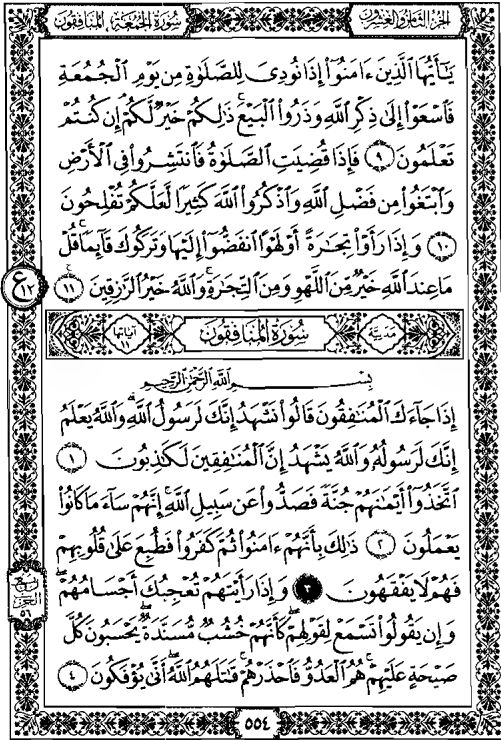 الجزء الثامن والعشرون
سورة الجمعة، المنافقون
يَٰٓأَيُّهَا الَّذِينَ ءَامَنُوٓا۟ إِذَا نُودِىَ لِلصَّلَوٰةِ مِن يَوْمِ الْجُمُعَةِ
فَاسْعَوْا۟ إِلَىٰ ذِكْرِ اللَّهِ وَذَرُوا۟ الْبَيْعَ ۚ ذَٰلِكُمْ خَيْرٌ لَّكُمْ إِن كُنتُمْ
تَعْلَمُونَ ٩ فَإِذَا قُضِيَتِ الصَّلَوٰةُ فَانتَشِرُوا۟ فِى الْأَرْضِ
وَابْتَغُوا۟ مِن فَضْلِ اللَّهِ وَاذْكُرُوا۟ اللَّهَ كَثِيرًا لَّعَلَّكُمْ تُفْلِحُونَ
١٠ وَإِذَا رَأَوْا۟ تِجَٰرَةً أَوْ لَهْوًا انفَضُّوٓا۟ إِلَيْهَا وَتَرَكُوكَ قَآئِمًا ۚ قُلْ
مَا عِندَ اللَّهِ خَيْرٌ مِّنَ اللَّهْوِ وَمِنَ التِّجَٰرَةِ ۚ وَاللَّهُ خَيْرُ الرَّٰزِقِينَ ١١
ع ١٢
مدنية
سورة المنافقون
آياتها ١١
بِسْمِ اللَّهِ الرَّحْمَٰنِ الرَّحِيمِ
إِذَا جَآءَكَ الْمُنَٰفِقُونَ قَالُوا۟ نَشْهَدُ إِنَّكَ لَرَسُولُ اللَّهِ ۗ وَاللَّهُ يَعْلَمُ
إِنَّكَ لَرَسُولُهُۥ وَاللَّهُ يَشْهَدُ إِنَّ الْمُنَٰفِقِينَ لَكَٰذِبُونَ ١
اتَّخَذُوٓا۟ أَيْمَٰنَهُمْ جُنَّةً فَصَدُّوا۟ عَن سَبِيلِ اللَّهِ ۚ إِنَّهُمْ سَآءَ مَا كَانُوا۟
يَعْمَلُونَ ٢ ذَٰلِكَ بِأَنَّهُمْ ءَامَنُوا۟ ثُمَّ كَفَرُوا۟ فَطُبِعَ عَلَىٰ قُلُوبِهِمْ
فَهُمْ لَا يَفْقَهُونَ ٣ وَإِذَا رَأَيْتَهُمْ تُعْجِبُكَ أَجْسَامُهُمْ ۖ
وَإِن يَقُولُوا۟ تَسْمَعْ لِقَوْلِهِمْ ۖ كَأَنَّهُمْ خُشُبٌ مُّسَنَّدَةٌ ۖ يَحْسَبُونَ كُلَّ
صَيْحَةٍ عَلَيْهِمْ ۚ هُمُ الْعَدُوُّ فَاحْذَرْهُمْ ۚ قَٰتَلَهُمُ اللَّهُ ۖ أَنَّىٰ يُؤْفَكُونَ ٤
ربع
الحزب
٥٦
٥٥٤